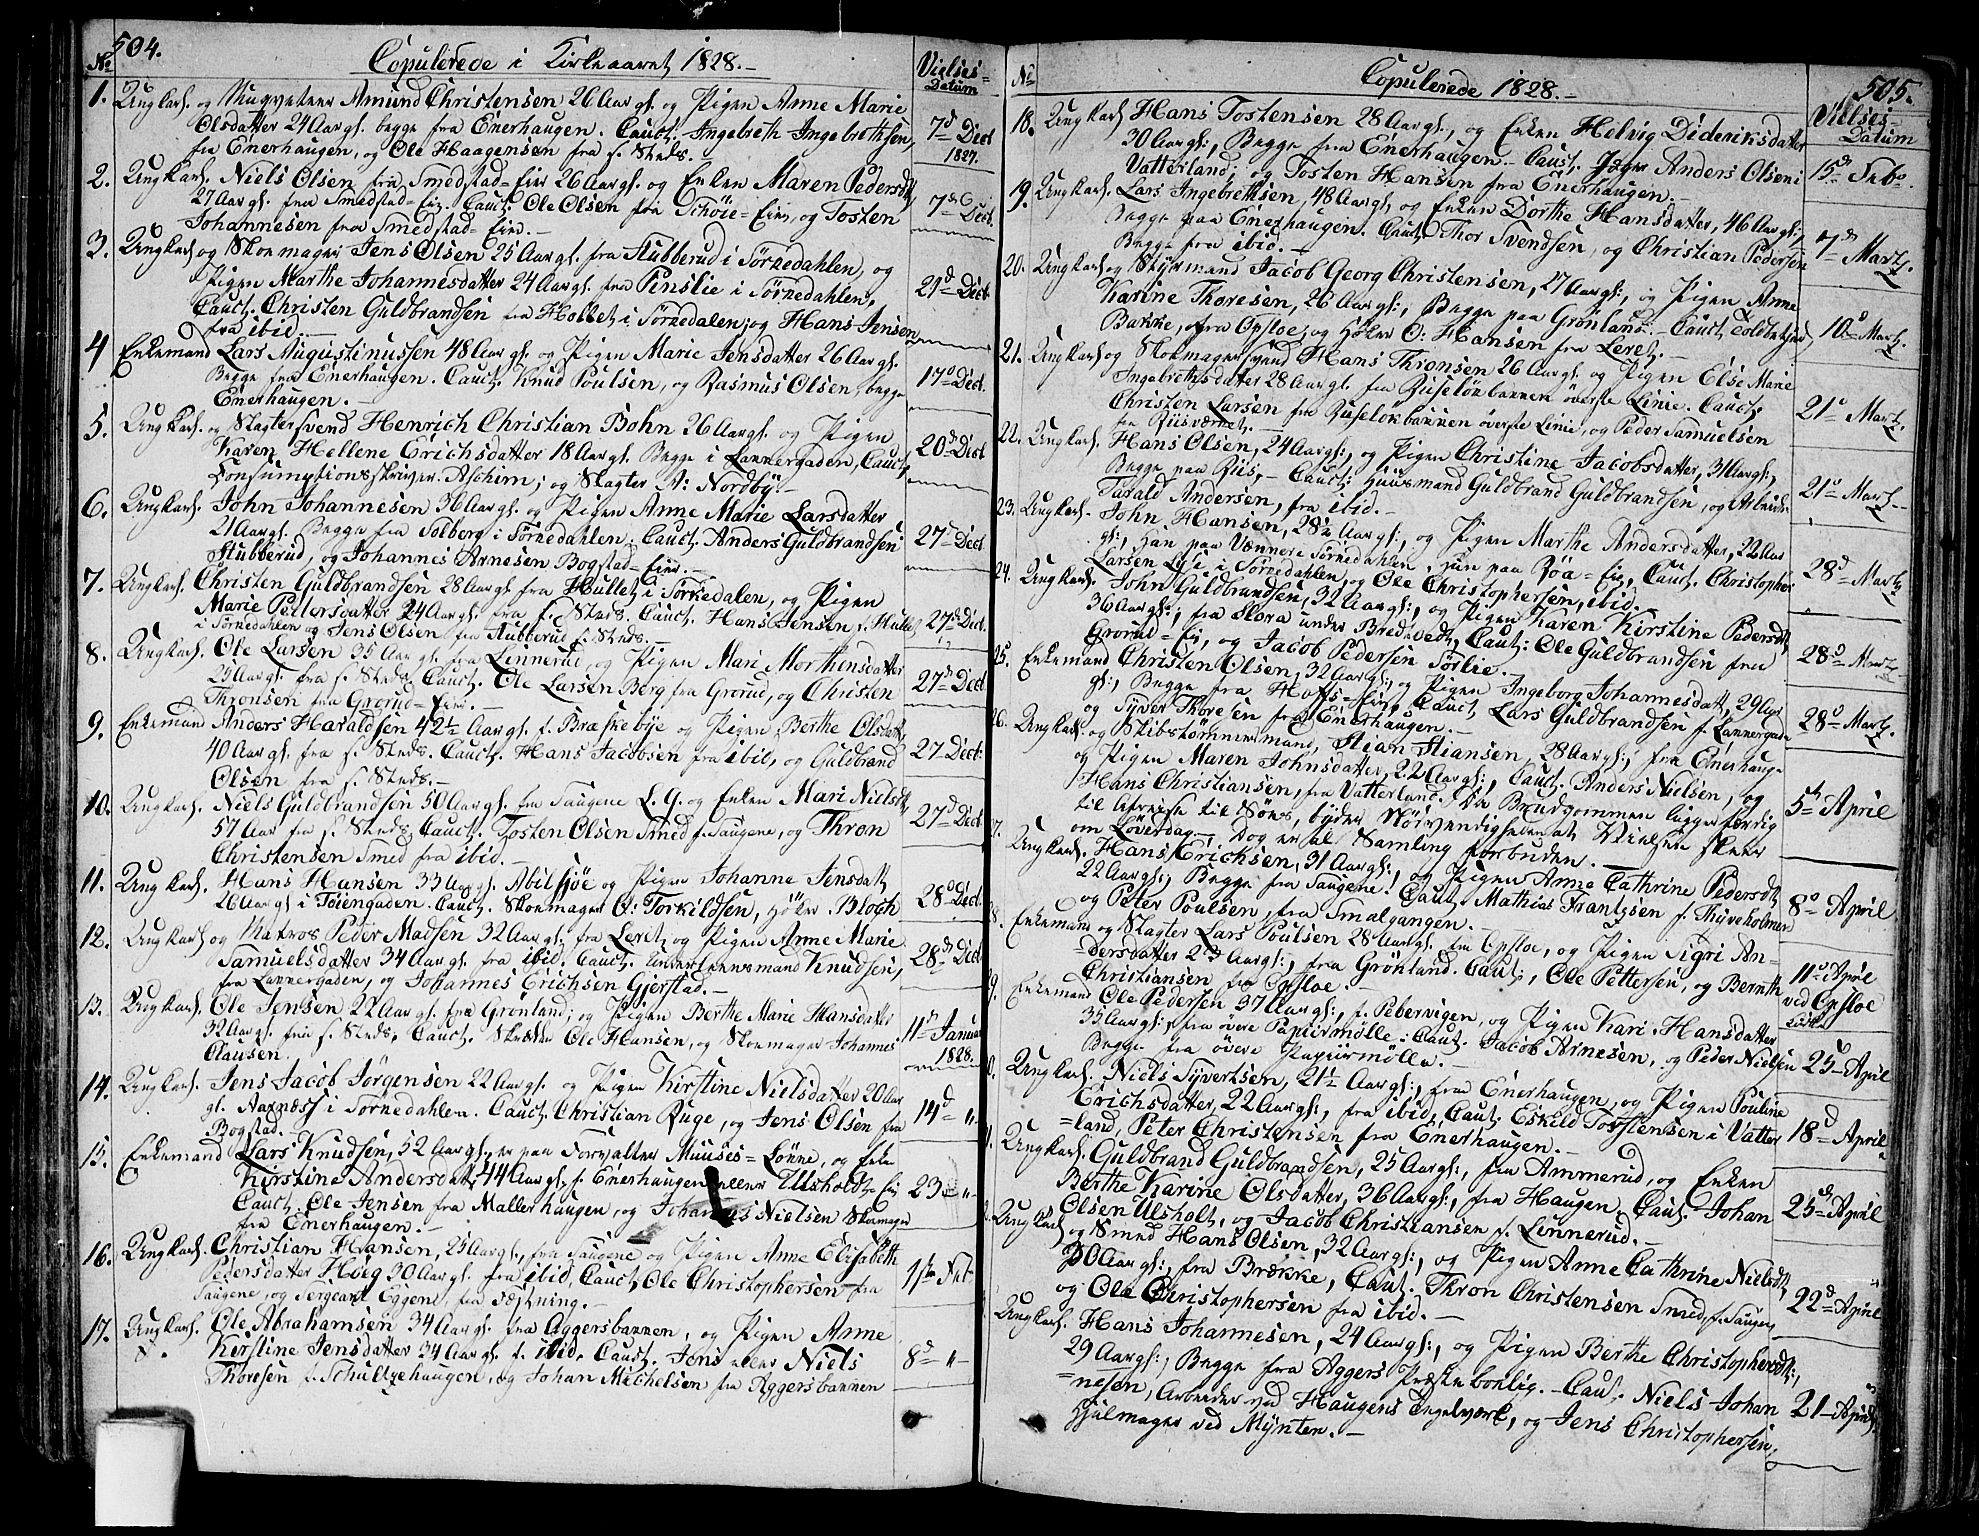 504.
No
Copulerede i Kirkeaaret 1828.-
Vielses=
Datum
1. Ungkarl og Muqveteer Amund Christensen 26 Aar gl. og Pigen Anne Marie
Olsdatter 24 Aar gl. begge fra Enerhaugen. Cauct. Ingebreth Ingebrethsen,
fra Enerhaugen, og Ole Haagensen fra s. Steds.
7d Dect
1827.
2. Ungkarl. Niels Olsen fra Smedstad=Eier 26 Aar gl. og Enken Maren Pedersdt,
27 Aar gl. fra Smedstad=Eie. Cauct. Ole Olsen fra Schøie=Eier, og Tosten
Johannesen fra Smedstad=Eier.-
7de Dect.
3. Ungkarl og Skomager Jens Olsen 25 Aar gl. fra Stubberud i Sørkedahlen, og
Pigen Marthe Johannesdatter 24 Aar gl. fra Pinslie i Sørkedahlen,
Cauct. Christen Guldbrandsen fra Hollet i Sørkedalen, og Hans Jensen
fra ibid.-
21d Dect.
4 Enkemand Lars Augustinussen 48 Aar gl. og Pigen Marie Jensdatter 26 Aar gl.
Begge fra Enerhaugen. Cauct. Knud Poulsen, og Rasmus Olsen, begge
Enerhaugen.-
17d Dect.
5. Ungkarl. og Slagtersvend Henrich Christian Bohn 26 Aar gl. og Pigen
Karen Hellene Erichsdatter 18 Aar gl. Begge i Lannergaden, Cauct,
Consumptionsskriver Aschim, og Slagter A: Nordby.-
20d Dect
6. Ungkarl. John Johannesen 36 Aar gl. og Pigen Anne Marie Larsdatter
21 Aar gl. Begge fra Solberg i Sørkedahlen. Cauct. Anders Guldbrandsen
Stubberud, og Johannes Arnesen Bogstad=Eier.-
27d Dect
7. Ungkarl. Christen Guldbrandsen 28 Aar gl fra Hullet i Sørkedalen, og Pigen
Marie Pettersdatter 24 Aar gl. fra s. Steds. Cauct. Hans Jensen f. Hullet
i Sørkedahlen og Jens Olsen fra Stubberud s. Steds.-
27d Dect.
8. Ungkarl. Ole Larsen 35 Aar gl. fra Linnerud, og Pigen Mari Morthensdatter
23 Aar gl. fra s. Steds. Cauct. Ole Larsen Berg fra Grorud, og Christen
Thronsen fra Grorud=Eier.-
27d Dect.
9. Enkemand Anders Haraldsen 42½ Aar gl. f. Bræskebye og Pigen Berthe Olsdatt,
40 Aar gl. fra s. Steds. Cauct. Hans Jacobsen fra ibid, og Guldbrand
Olsen fra s. Steds.-
27 Dect.
10. Ungkarl. Niels Guldbrandsen 50 Aar gl. fra Saugene L. G. og Enken Mari Nielsdt,
57 Aar fra s. Steds. Cauct. Tosten Olsen Smed f. Saugene, og Thron
Christensen Smed fra ibid.-
27d Dect.
11. Ungkarl. Hans Hansen 33 Aar gl. Abilsjøe og Pigen Johanne Jensdatt,
26 Aar gl i Tøiengaden. Cauct. Skomager O: Torkildsen, Høker Bloch
28d Dect.
12. Ungkarl og Matros Peder Madsen 32 Aar gl. fra Leret, og Pigen Anne Marie
Samuelsdatter 34 Aar gl. fra ibid. Cauct. Underlensmand Knudsen,
fra Lannergaden, og Johannes Erichsen Gjerstad.-
28de Dect
13. Ungkarl. Ole Jensen 22 Aar gl. fra Grønland; og Pigen Berthe Marie Hansdatter
32 Aar gl. fra s. Steds, Cauct. Skrædder Ole Hansen, og Skomager Johannes
Clausen.
11d Januar
1828.
14. Ungkarl. Jens Jacob Jørgensen 22 Aar gl. og Pigen Kirstine Nielsdatter 20 Aar
gl. Aarnæss i Sørkedahlen. Cauct. Christian Ruge, og Jens Olsen fra
Bogstad.
14d "-
15. Enkemand Lars Knudsen, 52 Aar gl., er paa Forvalter Muuses=Løkke, og Enke
Kirstine Andersdatt, 44 Aar gl. f. Enerhaugen eller Ulsholdt=Eie
Cauct. Ole Jensen fra Mallerhaugen, og Johannes Nielsen Skomager
fra Enerhaugen.-
23 "-
16. Ungkarl. Christian Hansen, 25 Aar gl., fra Saugene og Pigen Anne Elisabeth
Pedersdatter Høeg 30 Aar gl. fra ibid, Cauct, Ole Christophersen fra
Saugene, og Sergeant Eggene, fra Fæstning.-
1ste Feb-
17. Ungkarl. Ole Abrahamsen 34 Aar gl. fra Aggersbakken, og Pigen Anne
Kirstine Jensdatter 34 Aar gl. f. ibid, Cauct. Jens eller Niels
Thoresen f. Schultzehaugen, og Johan Michelsen fra Aggersbakken
8d "-
No
Copulerede 1828.-
505.
Vielses=
Datum
18. Ungkarl Hans Tostensen 28 Aar gl., og Enken Helvig Dideriksdatter
30 Aar gl:, Begge fra Enerhaugen.- Cauct. Jæger Anders Olsen i
Vatterland, og Tosten Hansen fra Enerhaugen.-
15d Feb.
19. Ungkarl. Lars Ingebrethsen, 48 Aar gl, og Enken Dorthe Hansdatter, 46 Aar gl:,
Begge paa Enerhaugen. Cauct. Thor Svendsen, og Christian Pedersen
Begge fra ibid.-
7d Martz.
20. Ungkarl og Styrmand Jacob Georg Christensen, 27 Aar gl:, og Pigen Anne
Karine Thoresen, 26 Aar gl:, Begge paa Grønland. Cauct. Toldbetjent
Bakke, fra Opsloe, og Høker O: Hansen fra Leret.-
10d Martz.
21. Ungkarl og Skomagersvend Hans Thronsen 26 Aar gl. og Pigen Else Marie
Ingebrethsdatter 28 Aar gl. fra Ruseløkbakken øverste Linie. Cauct.
Christen Larsen fra Ruseløkbakken øverste Linie, og Peder Samuelsen
fra Riisværket.-
21d Martz.
22. Ungkarl. Hans Olsen, 24 Aar gl:, og Pigen Christine Jacobsdatter, 31 Aar gl:,
Begge paa Riis,- Cauct: Huusmand Guldbrand Guldbrandsen, og Arbeids-
Tarald Andersen, fra ibid.-
21d Martz.
23. Ungkarl. John Hansen, 28½ Aar gl:, og Pigen Marthe Andersdatter, 22 Aar
gl:, Han paa Vennere Sørkedahlen, hun paa Røa=Eie, Cauct. Christopher
Larsen Lysi i Sørkedahlen, og Ole Christophersen, ibid.
28d Martz
24. Ungkarl. John Guldbrandsen, 32 Aar gl:, og Pigen Karen Kirstine Pedersdt,
36 Aar gl:, fra Flora under Bredtvedt, Cauct: Ole Guldbrandsen fra
Grorud=Eie, og Jacob Pedersen Sørlie.
28d Martz
25. Enkemand Christen Olsen, 32 Aar gl:, og Pigen Ingeborg Johannesdatt, 29 Aar
gl:, Begge fra Hofs=Eie, Cauct, Lars Guldbrandsen f. Lannergade
og Syver Thoresen fra Enerhaugen.-
28d Martz.
26. Ungkarl og Skibstømmermand, Stian Stiansen, 28 Aar gl:, fra Enerhauge
og Pigen Maren Johnsdatter, 22 Aar gl:, Cauct. Anders Nielsen, og
Hans Christiansen, fra Vatterland. Da Brudgommen ligger færdig
til Afreise til Søes, byder Nødvendigheden at Vielsen skeer
om Løverdag.- Dog er al Samling forbuden.-
5te April
7. Ungkarl. Hans Erichsen, 31 Aar gl:, og Pigen Anne Cathrine Pedersdt,
22 Aar gl:, Begge fra Saugene. Cauct. Mathias Frantzsen f. Thyveholmen
og Peter Poulsen, fra Smalgangen.
8d April
8. Enkemand og Slagter Lars Poulsen 28 Aar gl. fra Opsloe, og Pigen Sigri An-
=dersdatter 23 Aar gl:, fra Grønland. Cauct:, Ole Pettersen, og Bernth
Christiansen fra Opsloe.-
11d April
ved Opsloe
9. Enkemand Ole Pedersen 37 Aar gl:, f. Pebervigen, og Pigen Kari Hansdatter
35 Aar gl:, fra øvere Papiirmølle. Cauct. Jacob Arnesen, og Peder Nielsen
Begge fra øvere Papiirmølle.-
25d April
0. Ungkarl. Niels Syvertsen, 21½ Aar gl:, fra Enerhaugen, og Pigen Pouline
Erichsdatter, 22 Aar gl:, fra ibid, Cauct. Eskild Torstensen i Vatter
=land, Peter Christensen fra Enerhaugen.-
18d April
1. Ungkarl. Guldbrand Guldbrandsen, 25 Aar gl:, fra Ammerud, og Enken
Berthe Karine Olsdatter, 36 Aar gl:, fra Haugen. Cauct. Johan
Olsen Ulsholt, og Jacob Christiansen f. Linnerud.-
25de April
Ungkarl og Smed Hans Olsen, 32 Aar gl:, og Pigen Anne Cathrine Nielsdt,
30 Aar gl:, fra Brække, Cauct. Thron Christensen Smed, f. Saugen
og Ole Christophersen fra ibid.-
22d April
Ungkarl. Hans Johannesen, 24 Aar gl:, og Pigen Berthe Christophersdt,
29 Aar gl:, Begge fra Aggers Præstebolig.- Cauct, Niels Johan
=nesen, Arbeider ved Haugens Tegelværk, og Jens Christophersen,
Hjulmager ved Mynten.-
21 April